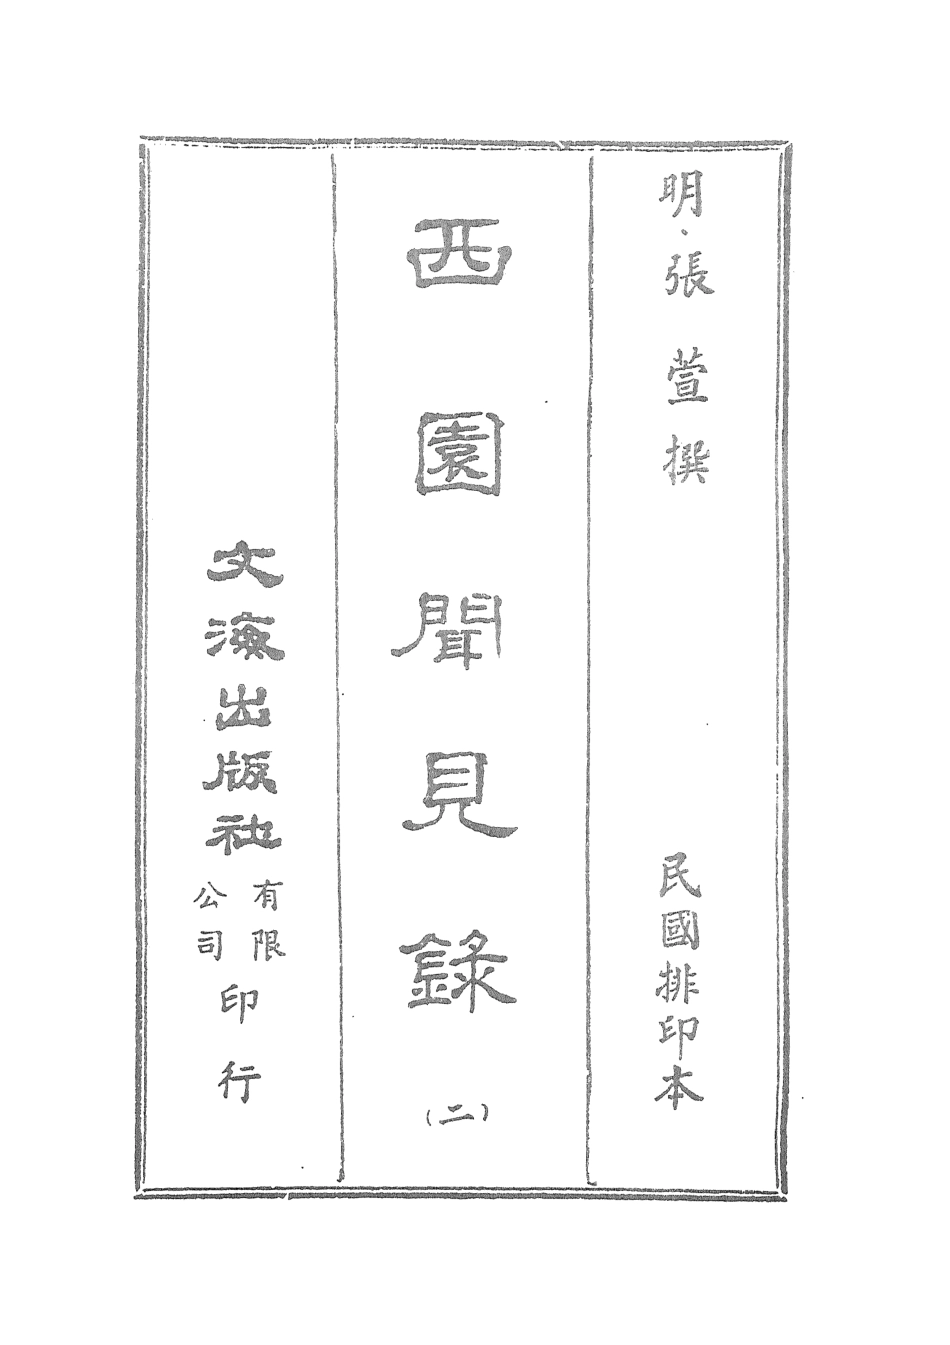 明·張萱撰
民國排印本
西園聞見錄
(二)
文海出版社
有限
公司
印行